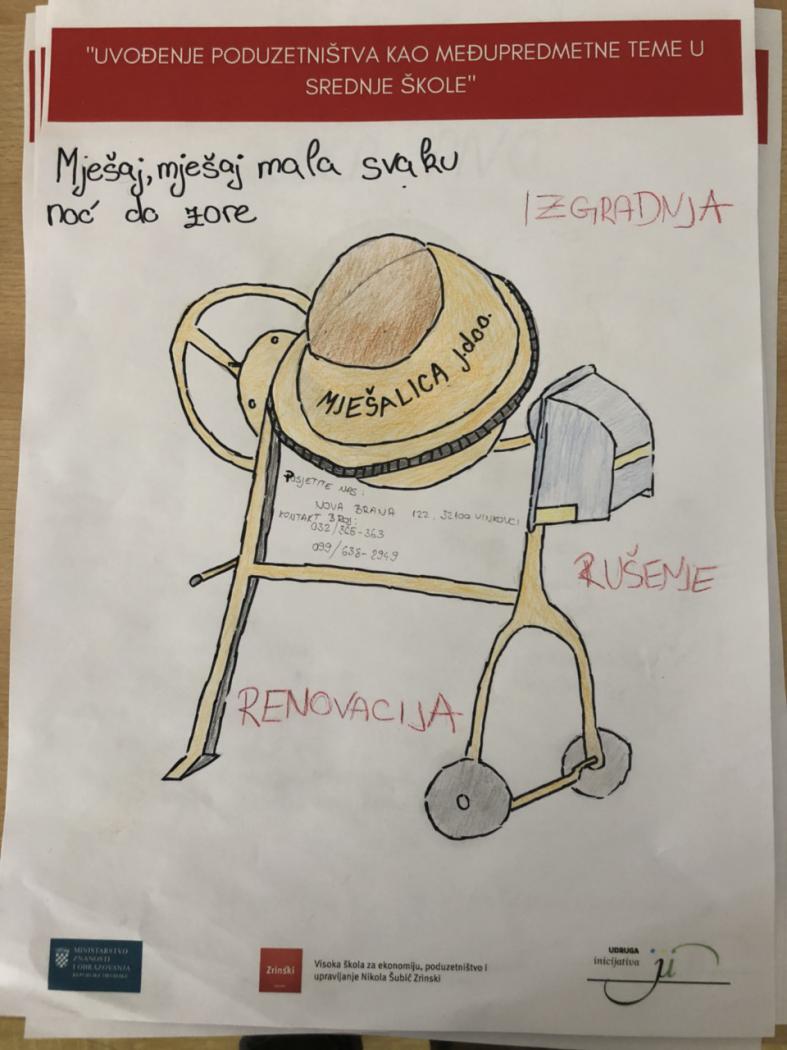 "UVOĐENJE PODUZETNIŠTVA KAO MEĐUPREDMETNE TEME U
SREDNJE ŠKOLE"
Mješaj, mješaj mala svaku
noć do zore
IZGRADNJA
MJEŠALICA j.doo.
POSJETITE NAS:
NOVA BRANA 122, 32100 VINKOVCI
KONTAKT BROJ:
032/365-363
099/638-2949
RUŠENJE
RENOVACIJA
MINISTARSTVO
ZNANOSTI
I OBRAZOVANJA
REPUBLIKE HRVATSKE
Zrinski
Visoka škola za ekonomiju, poduzetništvo i
upravljanje Nikola Šubić Zrinski
UDRUGA
inicijativa